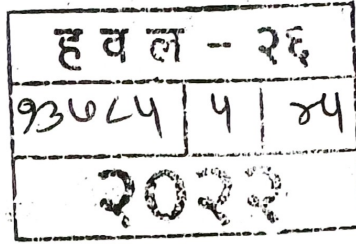 हवल - २६
१३७८५ | ५ | ४५
२०२२